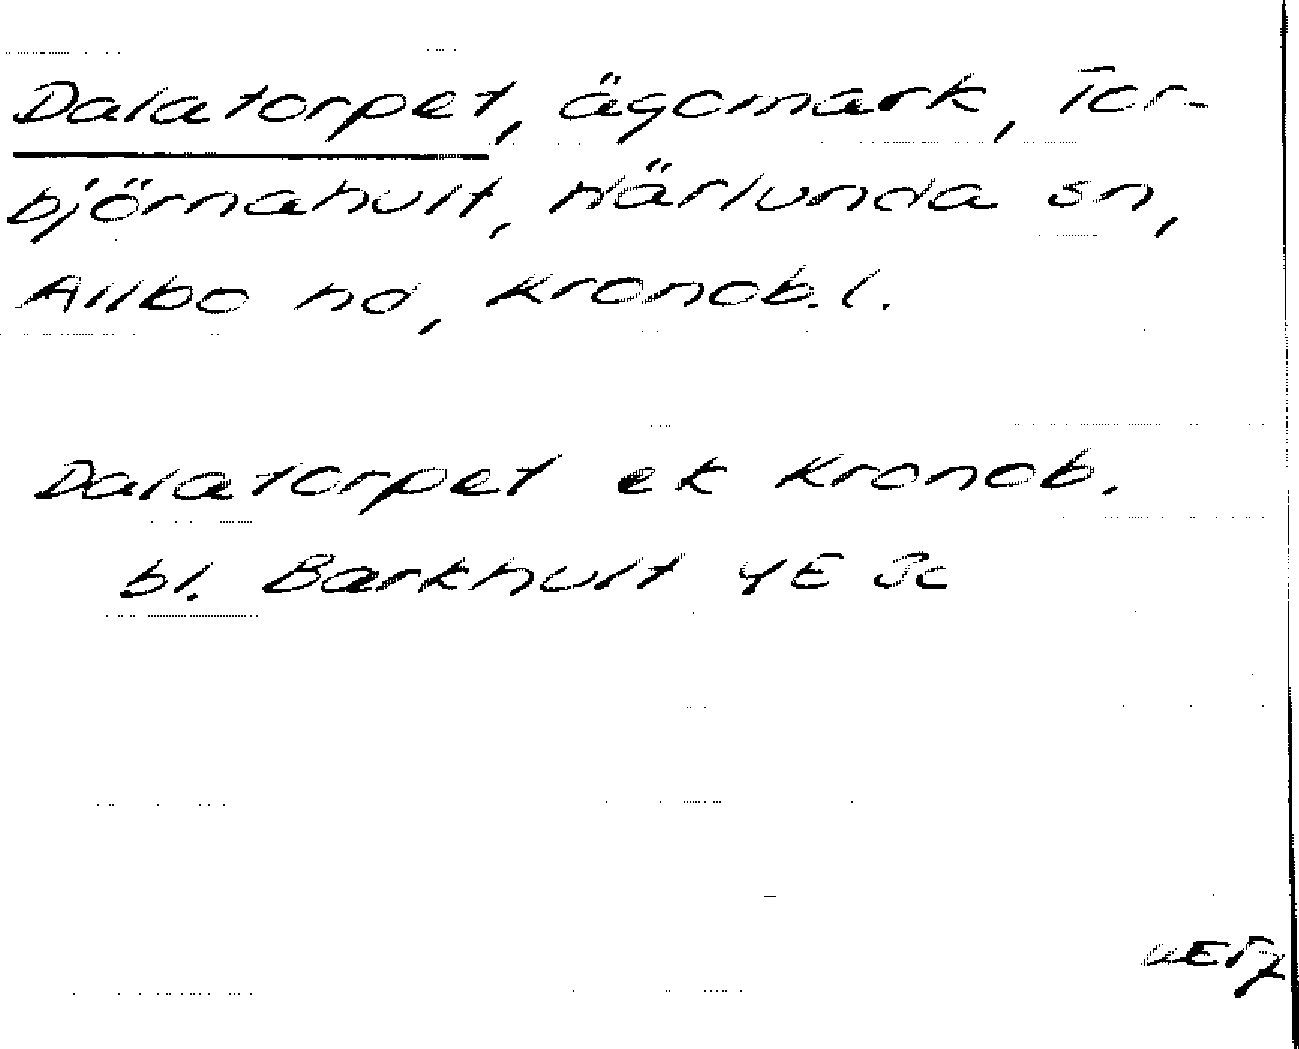 Dalatorpet, ägomark, Tor-
björnahult, Härlunda sn,
Allbo hd, Kronob.l.
Dalatorpet ek Kronob.
bl. Barkhult 4E 3c